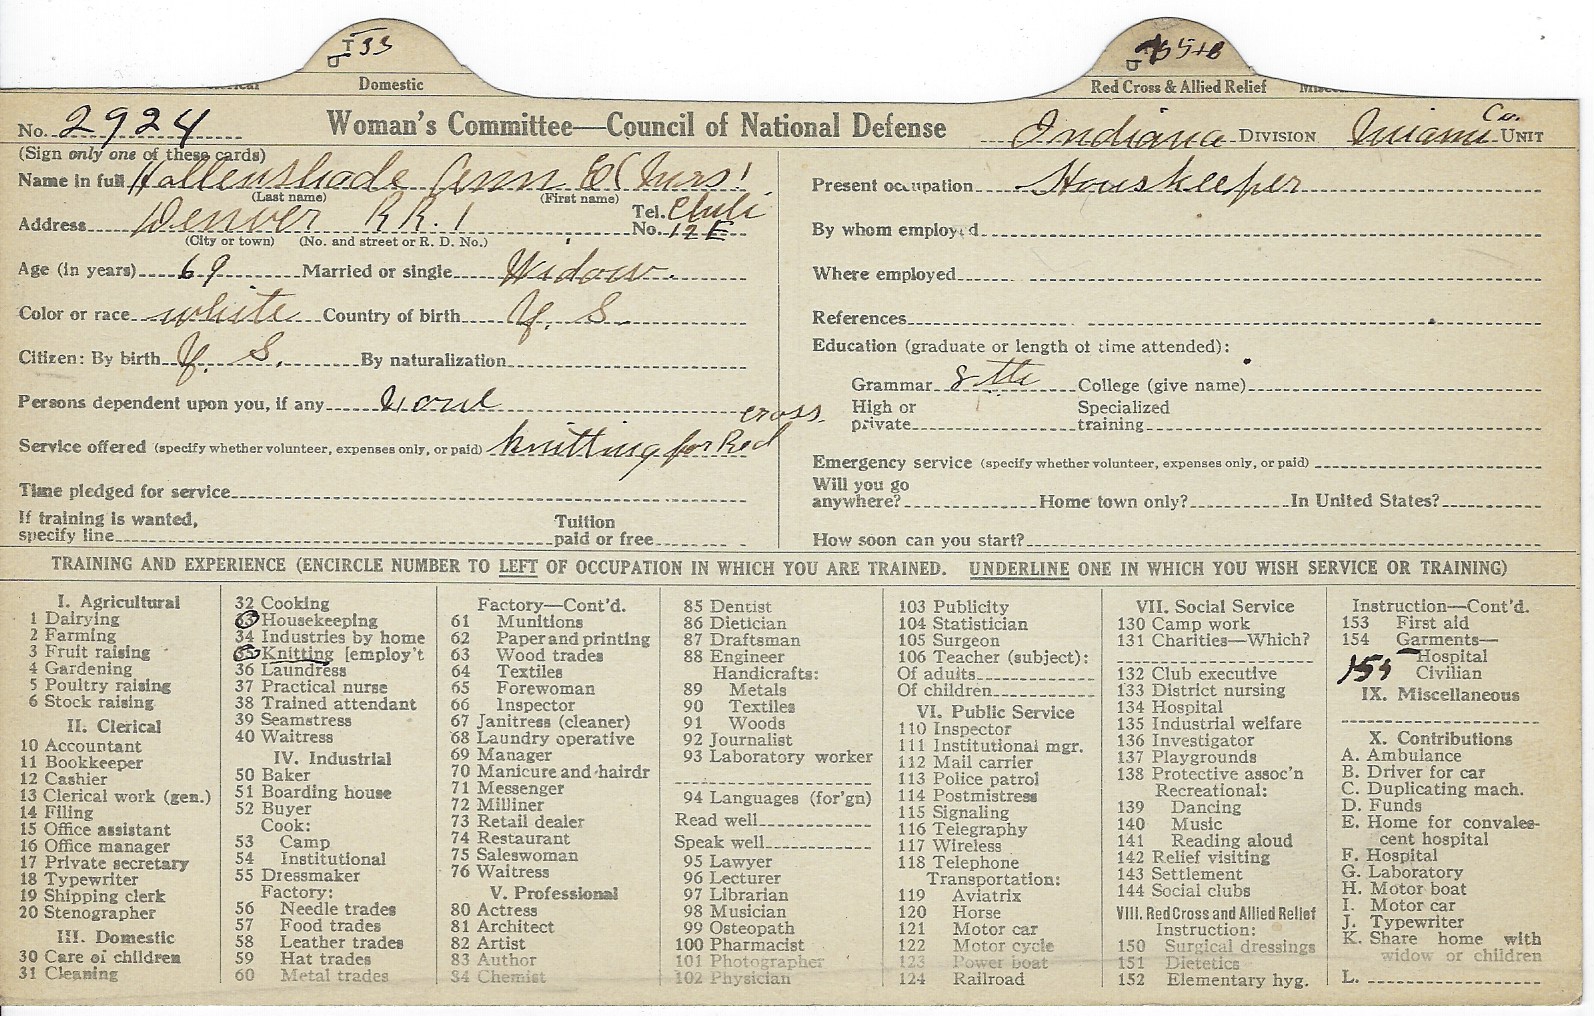 T 33
Domestic
Red Cross & Allied Relief
No. 2924
Woman's Committee—Council of National Defense
Indiana DIVISION Miami Co. UNIT
(Sign only one of these cards)
Name in full Hollenshade Ann E (Mrs)
(Last name) (First name)
Address Denver R R. 1 Tel. No. Chili 12 E
(City or town) (No. and street or R. D. No.)
Age (in years) 69 Married or single Widow.
Color or race white Country of birth U. S.
Citizen: By birth U. S. By naturalization
Persons dependent upon you, if any none
Service offered (specify whether volunteer, expenses only, or paid) knitting for Red cross.
Time pledged for service
If training is wanted, specify line Tuition paid or free
Present occupation Houskeeper
By whom employed
Where employed
References
Education (graduate or length of time attended):
Grammar 8th College (give name)
High or private Specialized training
Emergency service (specify whether volunteer, expenses only, or paid)
Will you go anywhere? Home town only? In United States?
How soon can you start?
TRAINING AND EXPERIENCE (ENCIRCLE NUMBER TO LEFT OF OCCUPATION IN WHICH YOU ARE TRAINED. UNDERLINE ONE IN WHICH YOU WISH SERVICE OR TRAINING)
I. Agricultural
1 Dairying
2 Farming
3 Fruit raising
4 Gardening
5 Poultry raising
6 Stock raising
II. Clerical
10 Accountant
11 Bookkeeper
12 Cashier
13 Clerical work (gen.)
14 Filing
15 Office assistant
16 Office manager
17 Private secretary
18 Typewriter
19 Shipping clerk
20 Stenographer
III. Domestic
30 Care of children
31 Cleaning
32 Cooking
33 Housekeeping
34 Industries by home
35 Knitting [employ't
36 Laundress
37 Practical nurse
38 Trained attendant
39 Seamstress
40 Waitress
IV. Industrial
50 Baker
51 Boarding house
52 Buyer
Cook:
53 Camp
54 Institutional
55 Dressmaker
Factory:
56 Needle trades
57 Food trades
58 Leather trades
59 Hat trades
60 Metal trades
Factory—Cont'd.
61 Munitions
62 Paper and printing
63 Wood trades
64 Textiles
65 Forewoman
66 Inspector
67 Janitress (cleaner)
68 Laundry operative
69 Manager
70 Manicure and hairdr
71 Messenger
72 Milliner
73 Retail dealer
74 Restaurant
75 Saleswoman
76 Waitress
V. Professional
80 Actress
81 Architect
82 Artist
83 Author
84 Chemist
85 Dentist
86 Dietician
87 Draftsman
88 Engineer
Handicrafts:
89 Metals
90 Textiles
91 Woods
92 Journalist
93 Laboratory worker
94 Languages (for'gn)
Read well
Speak well
95 Lawyer
96 Lecturer
97 Librarian
98 Musician
99 Osteopath
100 Pharmacist
101 Photographer
102 Physician
103 Publicity
104 Statistician
105 Surgeon
106 Teacher (subject):
Of adults
Of children
VI. Public Service
110 Inspector
111 Institutional mgr.
112 Mail carrier
113 Police patrol
114 Postmistress
115 Signaling
116 Telegraphy
117 Wireless
118 Telephone
Transportation:
119 Aviatrix
120 Horse
121 Motor car
122 Motor cycle
123 Power boat
124 Railroad
VII. Social Service
130 Camp work
131 Charities—Which?
132 Club executive
133 District nursing
134 Hospital
135 Industrial welfare
136 Investigator
137 Playgrounds
138 Protective assoc'n
Recreational:
139 Dancing
140 Music
141 Reading aloud
142 Relief visiting
143 Settlement
144 Social clubs
VIII. Red Cross and Allied Relief
Instruction:
150 Surgical dressings
151 Dietetics
152 Elementary hyg.
Instruction—Cont'd.
153 First aid
154 Garments—
Hospital
Civilian
IX. Miscellaneous
X. Contributions
A. Ambulance
B. Driver for car
C. Duplicating mach.
D. Funds
E. Home for convales-
cent hospital
F. Hospital
G. Laboratory
H. Motor boat
I. Motor car
J. Typewriter
K. Share home with
widow or children
L.